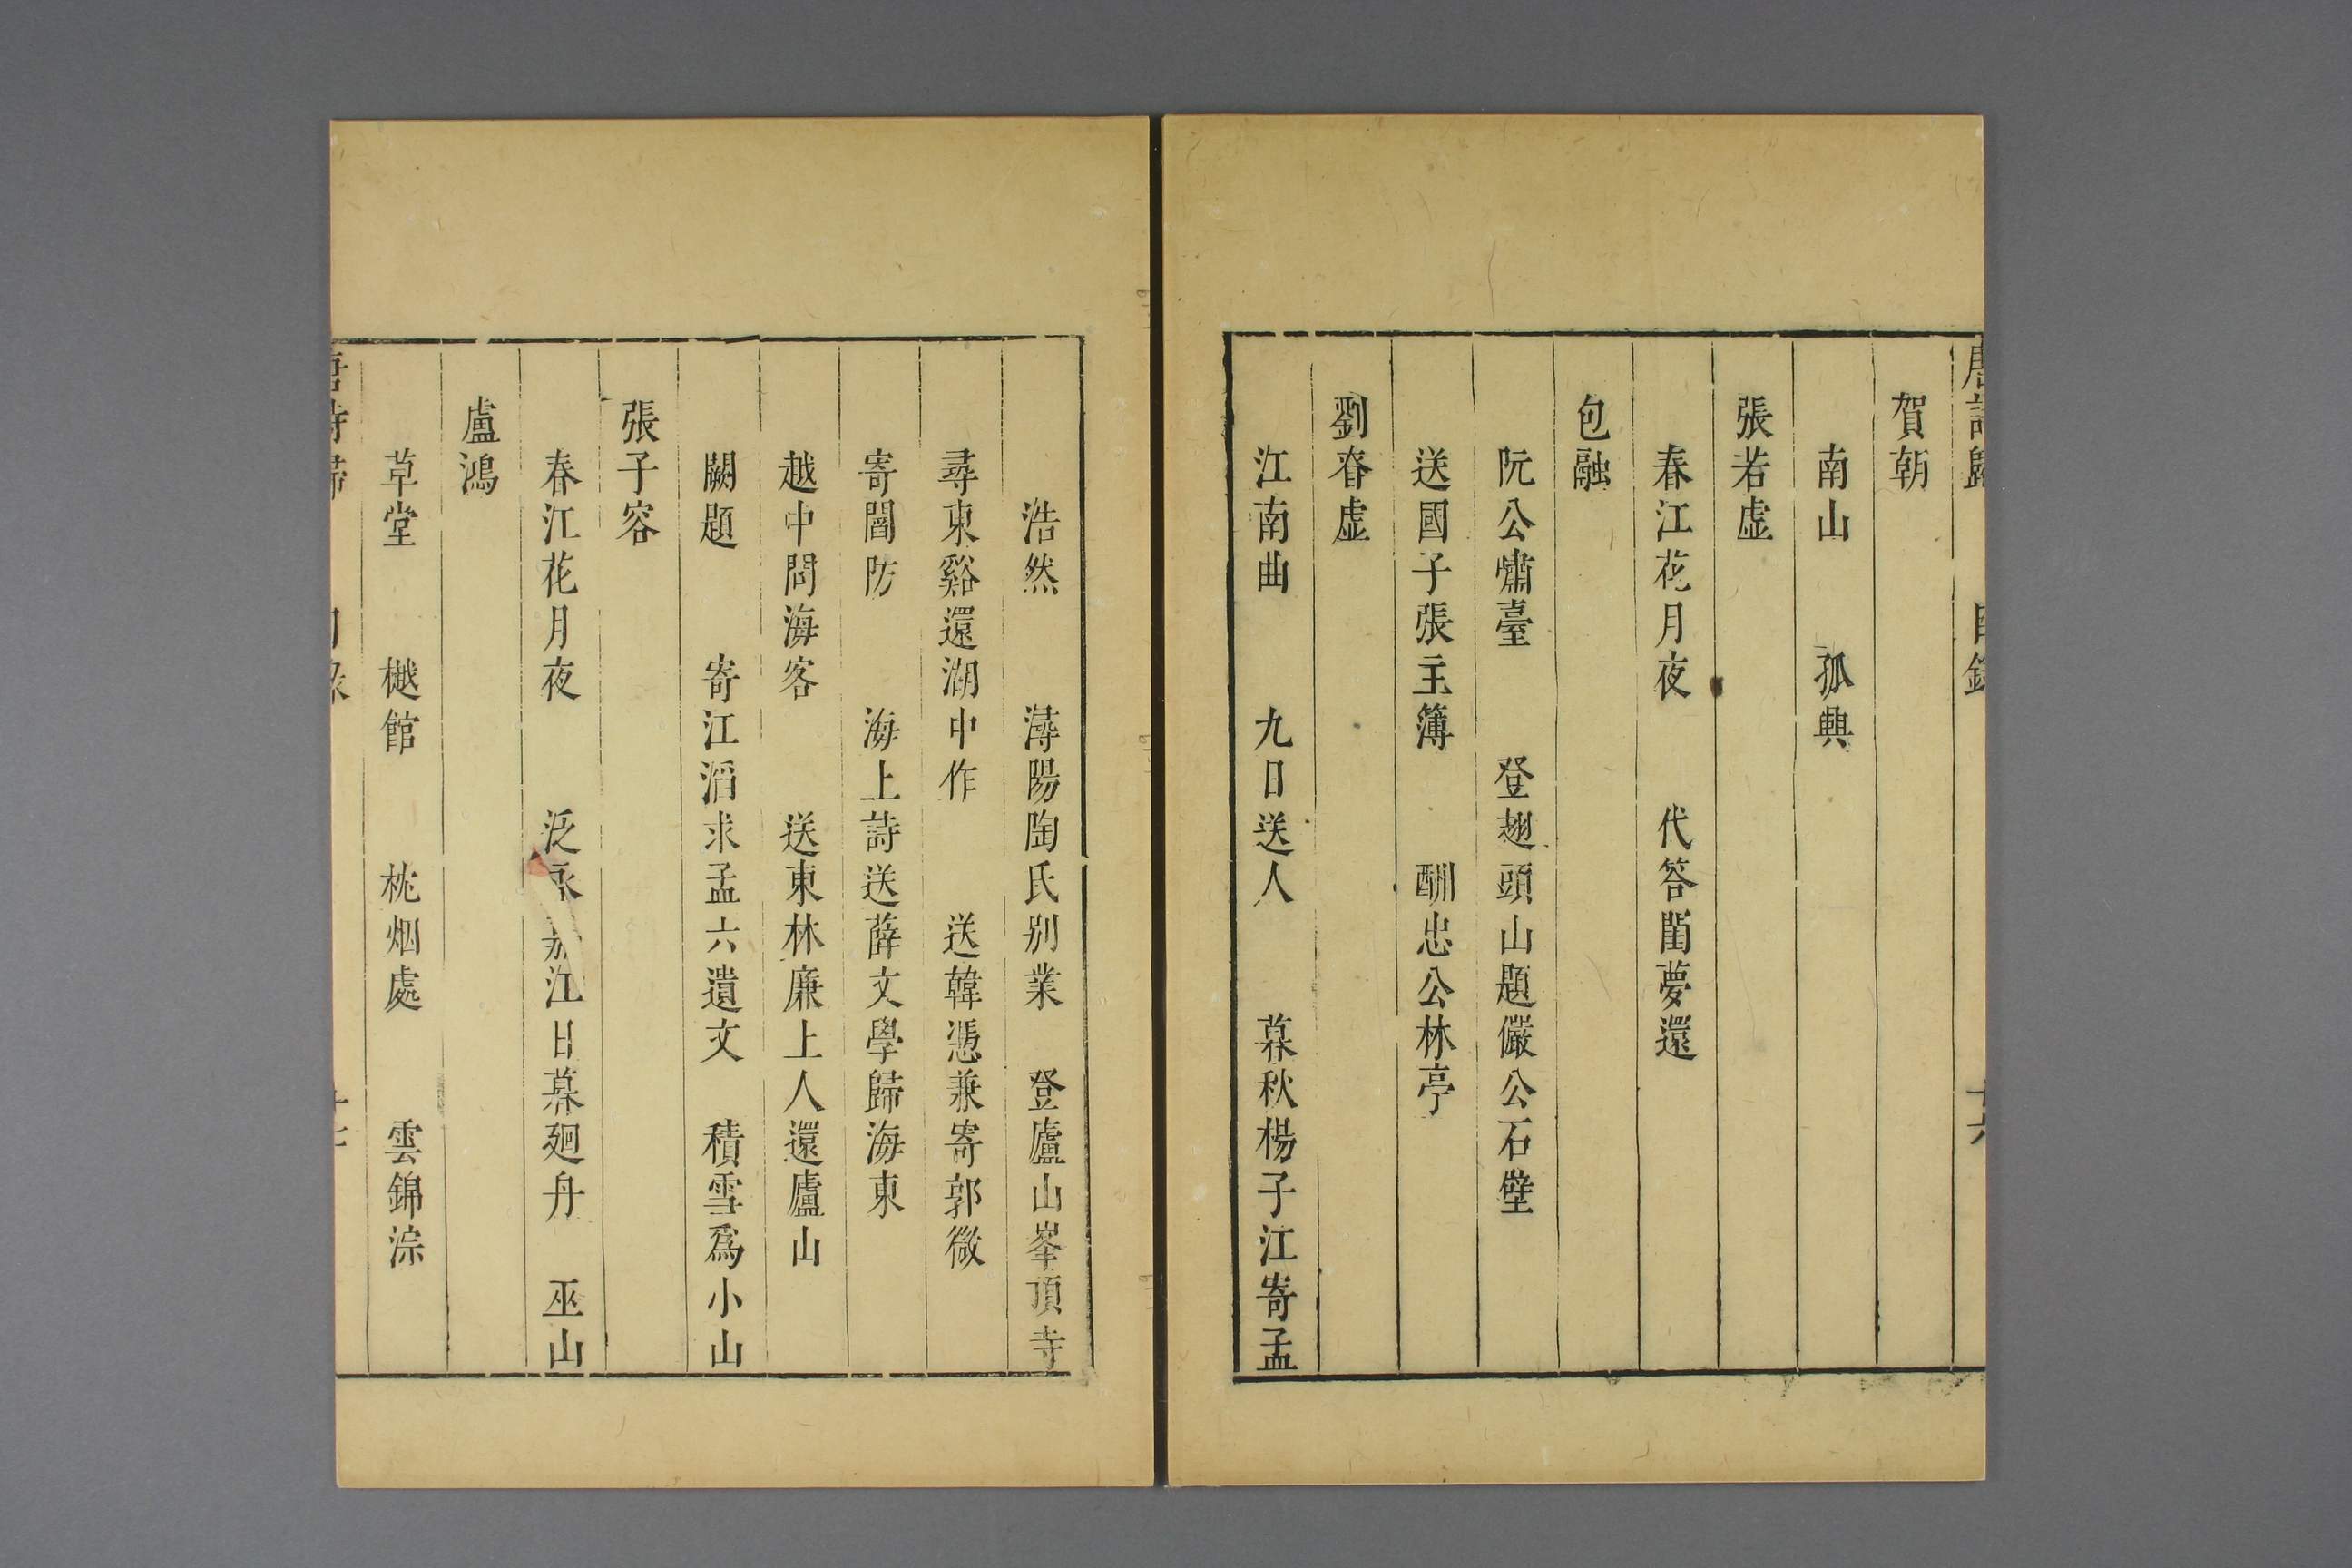 唐詩歸 目錄 十六
賀朝
南山 孤興
張若虛
春江花月夜 代答閨夢還
包融
阮公嘯臺 登翅頭山題儼公石壁
送國子張主簿 酬忠公林亭
劉昚虛
江南曲 九日送人 暮秋楊子江寄孟
浩然 潯陽陶氏別業 登廬山峯頂寺
尋東谿還湖中作 送韓憑兼寄郭微
寄閻防 海上詩送薛文學歸海東
越中問海客 送東林廉上人還廬山
闕題 寄江滔求孟六遺文 積雪為小山
張子容
春江花月夜 泛永嘉江日暮廻舟 巫山
盧鴻
草堂 樾館 枕烟處 雲錦淙
唐詩歸 目錄 十七